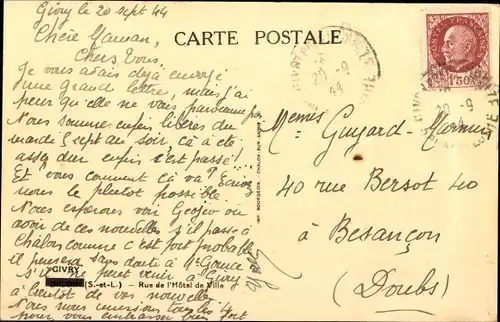 Givry le 20 sept 44
Chère Maman,
Chers Vous,
Je vous avais déjà envoyé
une grande lettre, mais j'ai
peur qu'elle ne vous parvienne pas
Nous sommes enfin libérés du
mardi 5 sept au soir, ça a été
assez dur enfin c'est passé!
Et vous comment ça va? Ecrivez
nous le plutôt possible
Nous espérons voir
avoir de ces nouvelles s'il passe à
Châlon comme c'est fort probable
il pensera sans doute à
s'il ne peut venir à Givry
à bientôt de vos nouvelles
Nous nous unissons tous les 4
pour vous embrasser bien fort
CARTE POSTALE
POSTES FRANÇAISES
1F50
20 -9
44
20 -9
IMP. BOURGEOIS, CHALON-SUR-SAONE
Guyard-
40 rue Bersot 40
à Besançon
(Doubs)
GIVRY
(S.-et-L.) — Rue de l'Hôtel de Ville